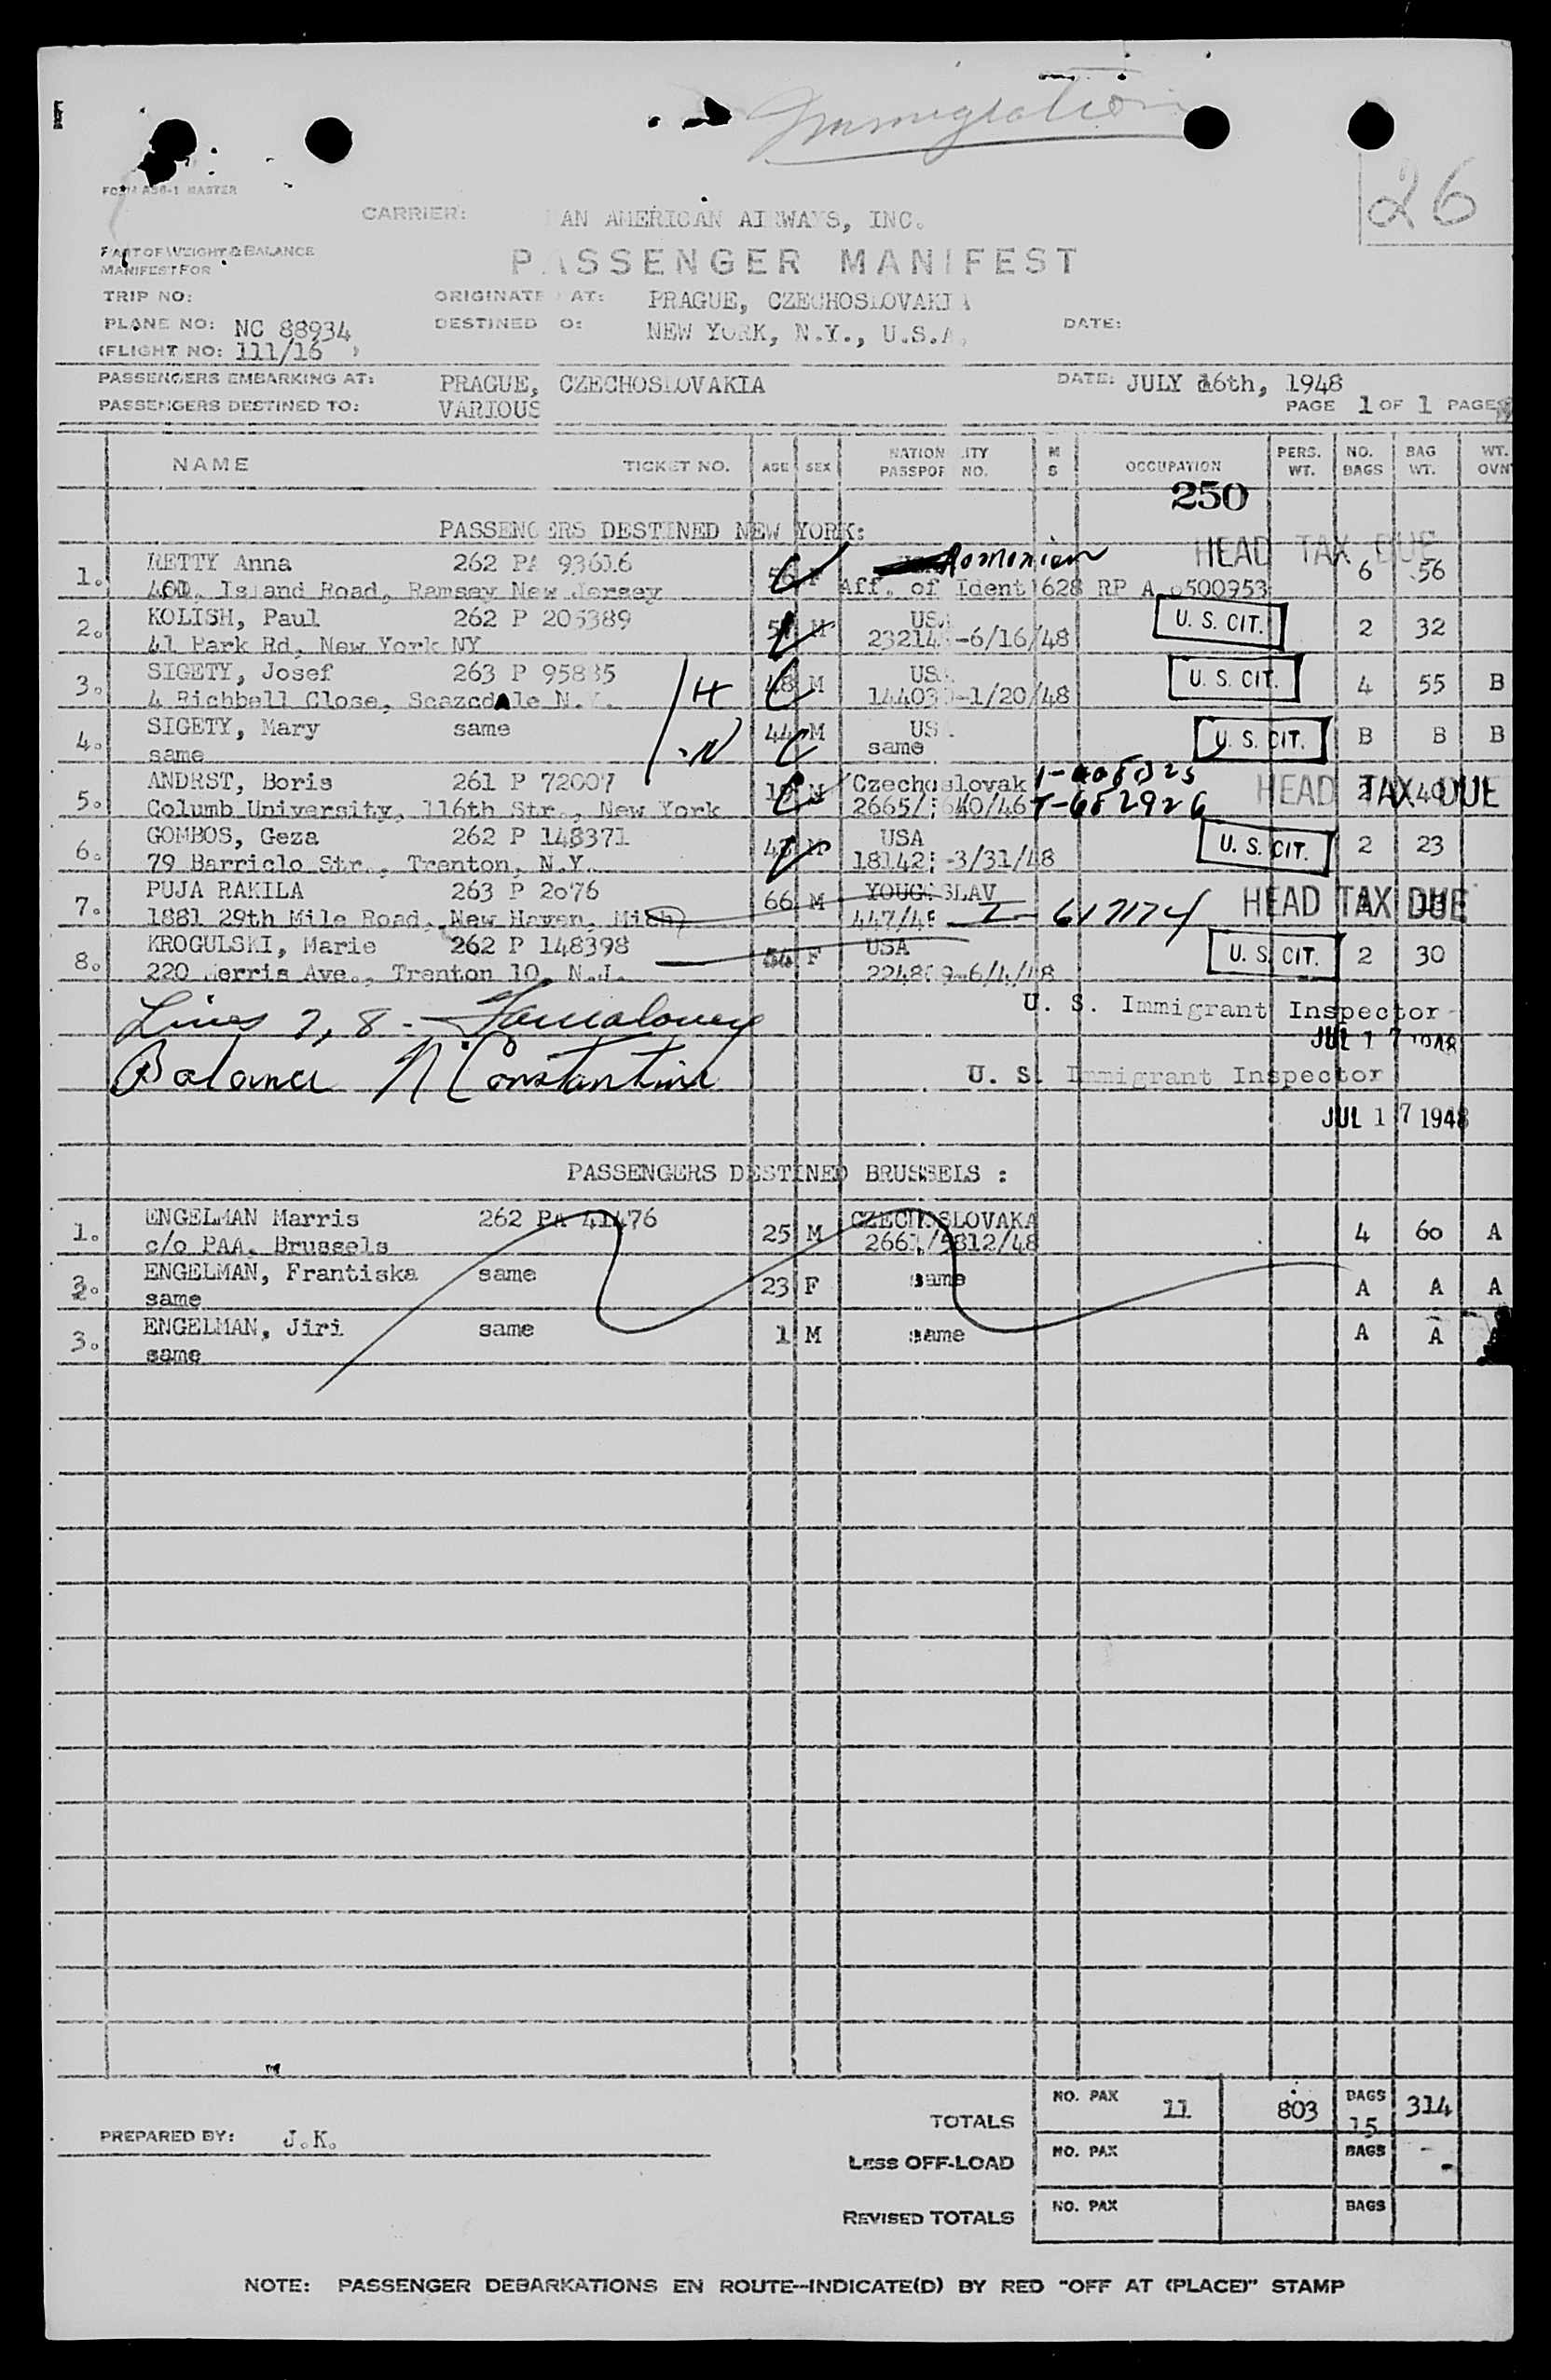 Immigration
26
FORM A36-1 MASTER
CARRIER: PAN AMERICAN AIRWAYS, INC.
PART OF WEIGHT & BALANCE
MANIFEST FOR
PASSENGER MANIFEST
TRIP NO: ORIGINATE AT: PRAGUE, CZECHOSLOVAKIA
PLANE NO: NC 88934 DESTINED TO: NEW YORK, N.Y., U.S.A. DATE:
(FLIGHT NO: 111/16 )
PASSENGERS EMBARKING AT: PRAGUE, CZECHOSLOVAKIA DATE: JULY 16th, 1948
PASSENGERS DESTINED TO: VARIOUS PAGE 1 OF 1 PAGES
NAME TICKET NO. AGE SEX NATIONALITY PASSPORT NO. M S OCCUPATION PERS. WT. NO. BAGS BAG WT. WT. OVN
250
PASSENGERS DESTINED NEW YORK:
1. RETTY Anna 262 PA 93616 56 F Romanian HEAD TAX DUE 6 56
Island Road, Ramsey New Jersey Aff. of Ident 628 RP A 500953
2. KOLISH, Paul 262 P 205389 M USA U. S. CIT. 2 32
41 Park Rd, New York NY -6/16/48
3. SIGETY, Josef 263 P 95835 H 48 M USA U. S. CIT. 4 55 B
4 Richbell Close, Scazcdale N.Y. -1/20/48
4. SIGETY, Mary same N 44 M USA U. S. CIT. B B B
same same
5. ANDRST, Boris 261 P 72007 19 M Czechoslovak HEAD TAX DUE 2 40
Columb University, 116th Str., New York 40/46 T-682926
6. GOMBOS, Geza 262 P 148371 M USA U. S. CIT. 2 23
79 Barriclo Str., Trenton, N.Y. -3/31/48
7. PUJA RAKILA 263 P 2076 66 M YOUGOSLAV HEAD TAX DUE
1881 29th Mile Road, New Haven, Mich 447/48 I-617174
8. KROGULSKI, Marie 262 P 148398 54 F USA U. S. CIT. 2 30
220 Morris Ave., Trenton 10, N.J. -6/4/48
Lines 7, 8 - U. S. Immigrant Inspector
JUL 17 1948
Balance N Constantine U. S. Immigrant Inspector
JUL 17 1948
PASSENGERS DESTINED BRUSSELS :
1. ENGELMAN Marris 262 PA 41476 25 M CZECHOSLOVAKA 4 60 A
c/o PAA, Brussels 2661/5812/48
2. ENGELMAN, Frantiska same 23 F same A A A
same
3. ENGELMAN, Jiri same 1 M same A A A
same
TOTALS NO. PAX 11 803 BAGS 15 314
PREPARED BY: J.K.
LESS OFF-LOAD NO. PAX BAGS -
REVISED TOTALS NO. PAX BAGS
NOTE: PASSENGER DEBARKATIONS EN ROUTE--INDICATE(D) BY RED "OFF AT (PLACE)" STAMP